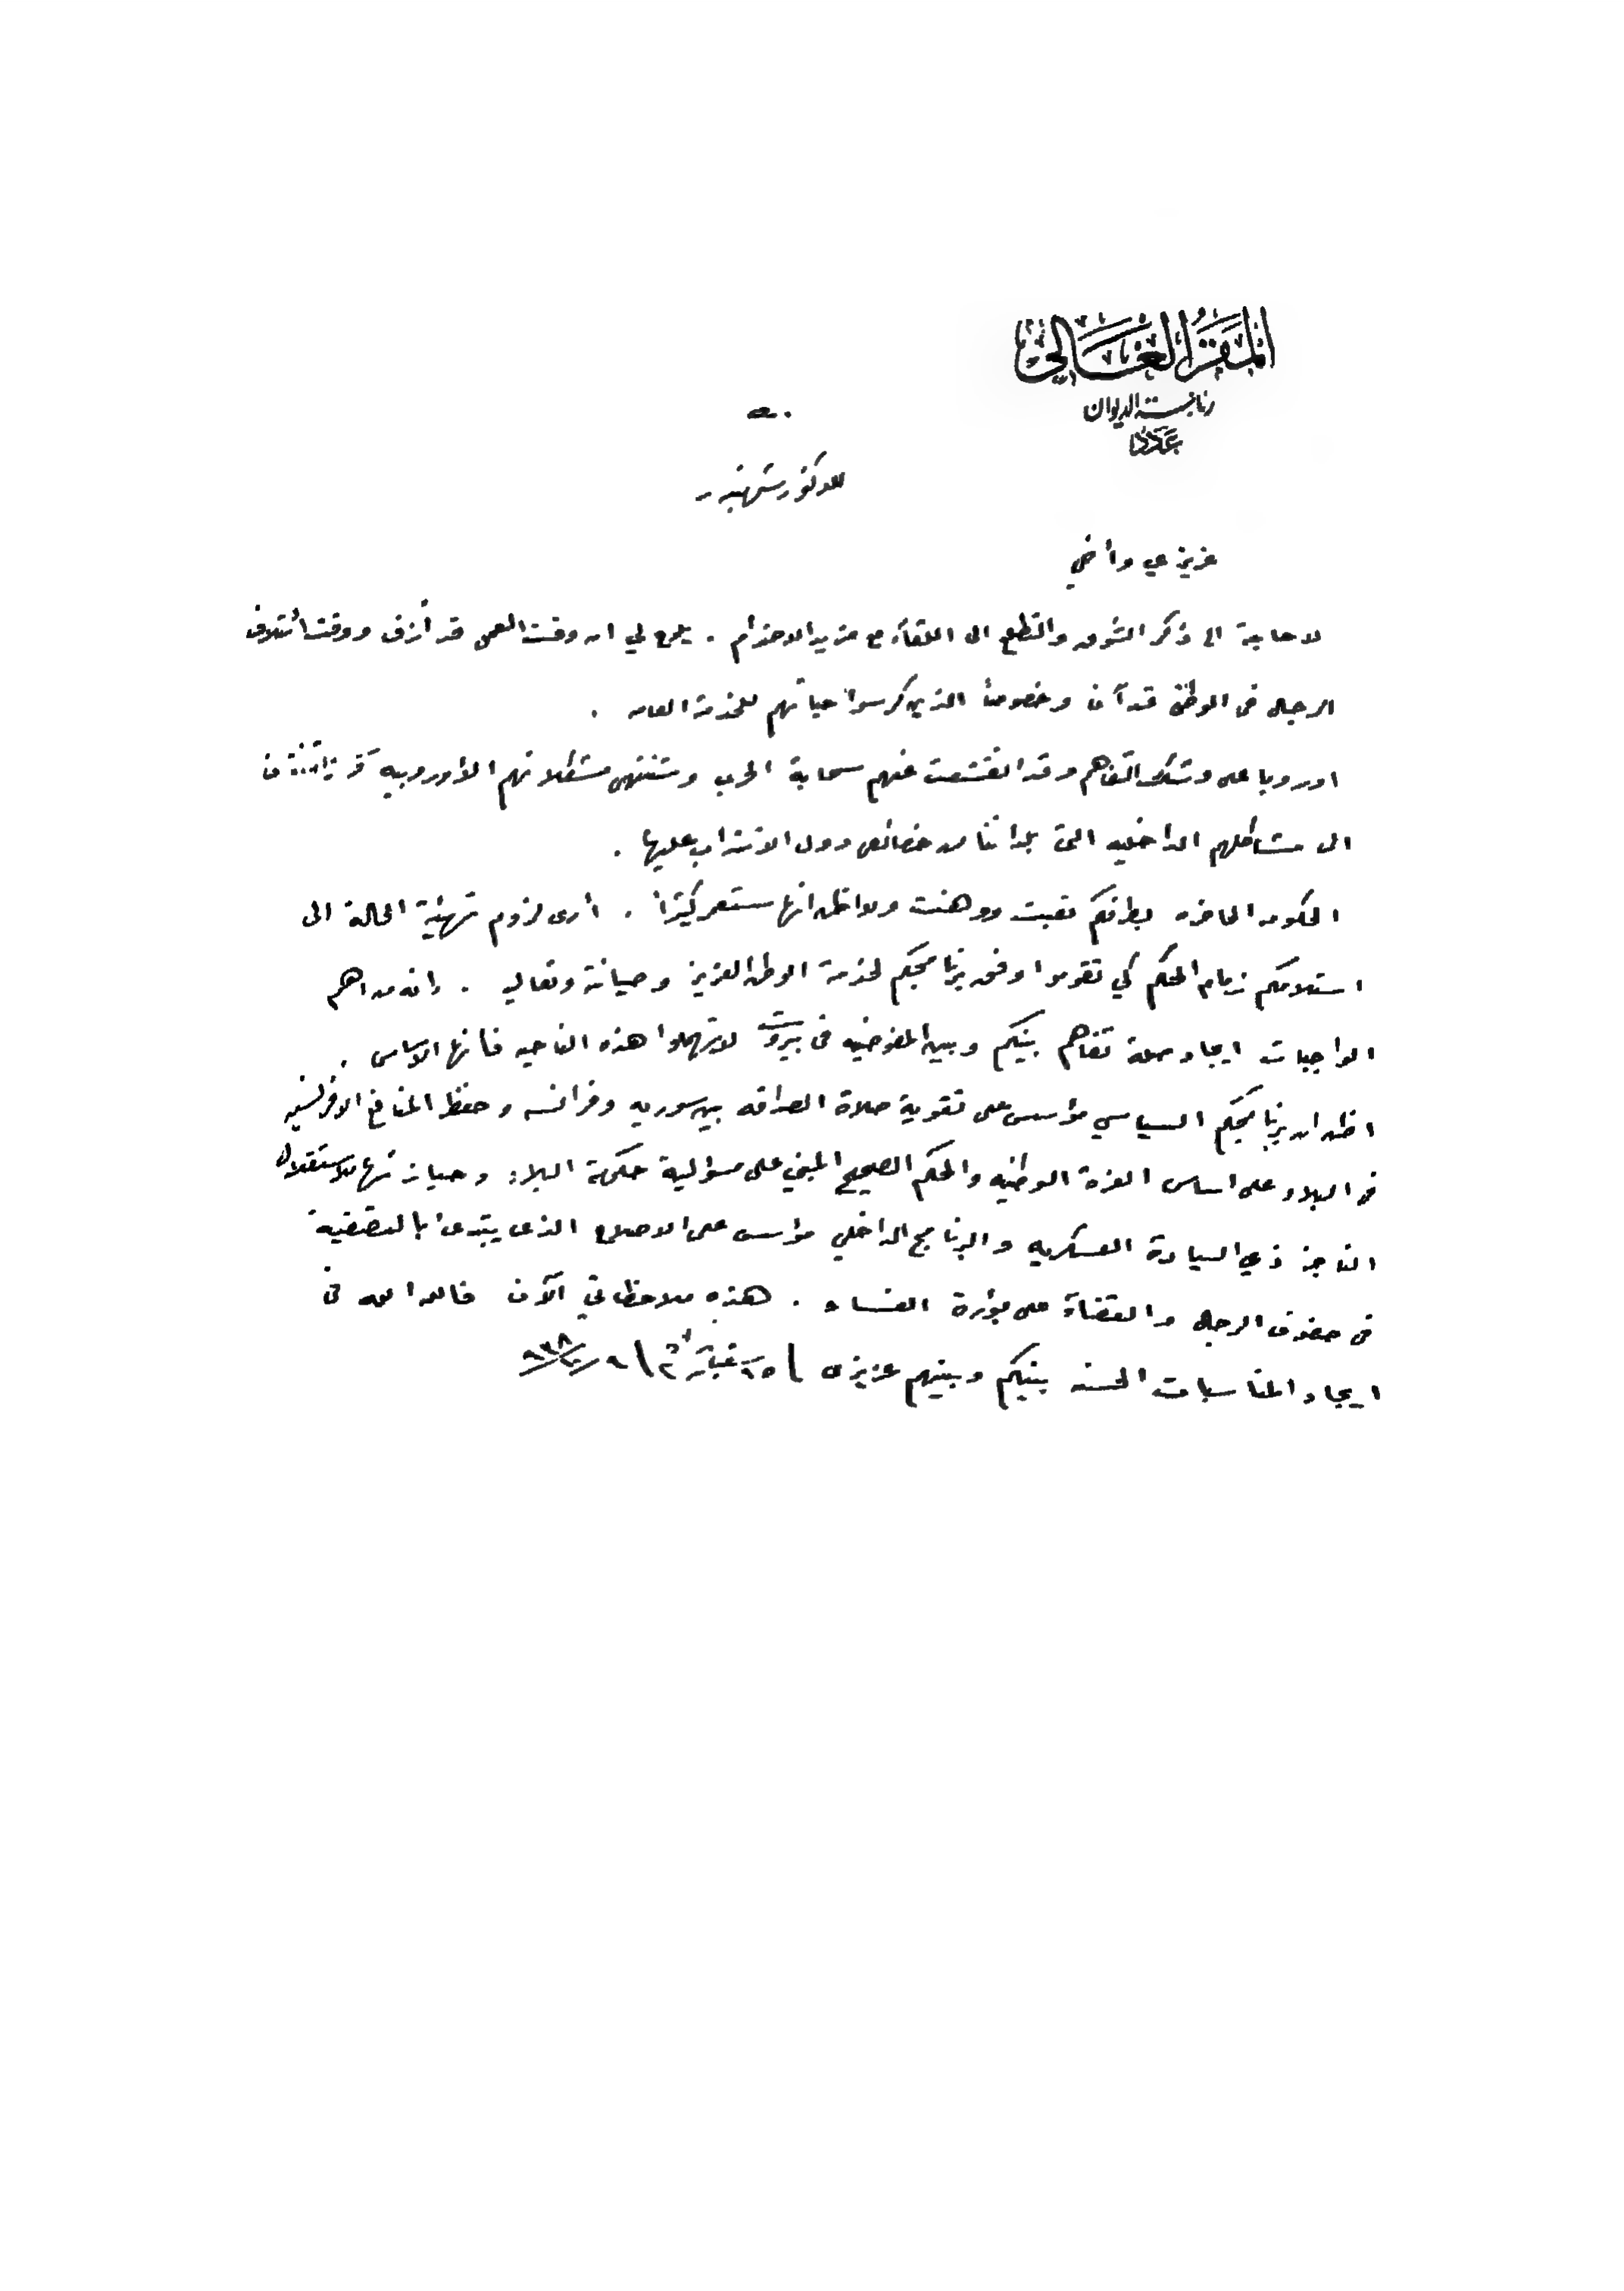 المقر العالي
رئاسة الديوان
عدد
للدكتور شهبندر
عزيزي وأخي
لا حاجة الى ذكر الشوق والتطلع الى اللقاء مع مزيد الاحترام . يلوح لي ان وقت العمل قد أزف ووقت ائتلاف
الرجال في الوطن قد آن وخصوصاً الذين كرسوا حياتهم للخدمة العامه .
اوروبا على وشك التفاهم وقد انقشعت عنهم سحابة الحرب وستنتهي مشكلاتهم الأوروبيه
الى مشاكلهم الداخليه التي بلداننا من خصائص دول الانتداب عليها .
الحكومه الحاضره بطرفكم تعبت ووهنت ولا اظن انها ستعمر كثيراً . أرى لزوم تهيئة الحالة الى
استلامكم زمام الحكم كي تقوموا وفق برنامجكم لخدمة الوطن العزيز وصيانته وتعاليه . وانه من اهم
الواجبات ايجاد صلة تفاهم بينكم وبين المفوضيه في بيروت لا تهملوا هذه الناحيه فانها الاساس .
اظن ان برنامجكم السياسي مؤسس على تقوية صلاة الصداقه بين سوريه وفرانسه وحفظ المنافع الافرنسيه
في البلاد على اساس العزة الوطنيه والحكم الصحيح المبني على مسؤلية حكومة البلاد وحيازتها للاستقلال
الناجز ذي السيادة العسكريه والبرنامج الداخلي مؤسس على الاصلاح الذي يبتدئ بالتصفية
في صفوف الرجال والقضاء على بؤرة الفساد . هذه ملاحظاتي الآن فالله الله في
ايجاد المناسبات الحسنه بينكم وبينهم عزيزي ٢٥ شعبان ٩٣٨